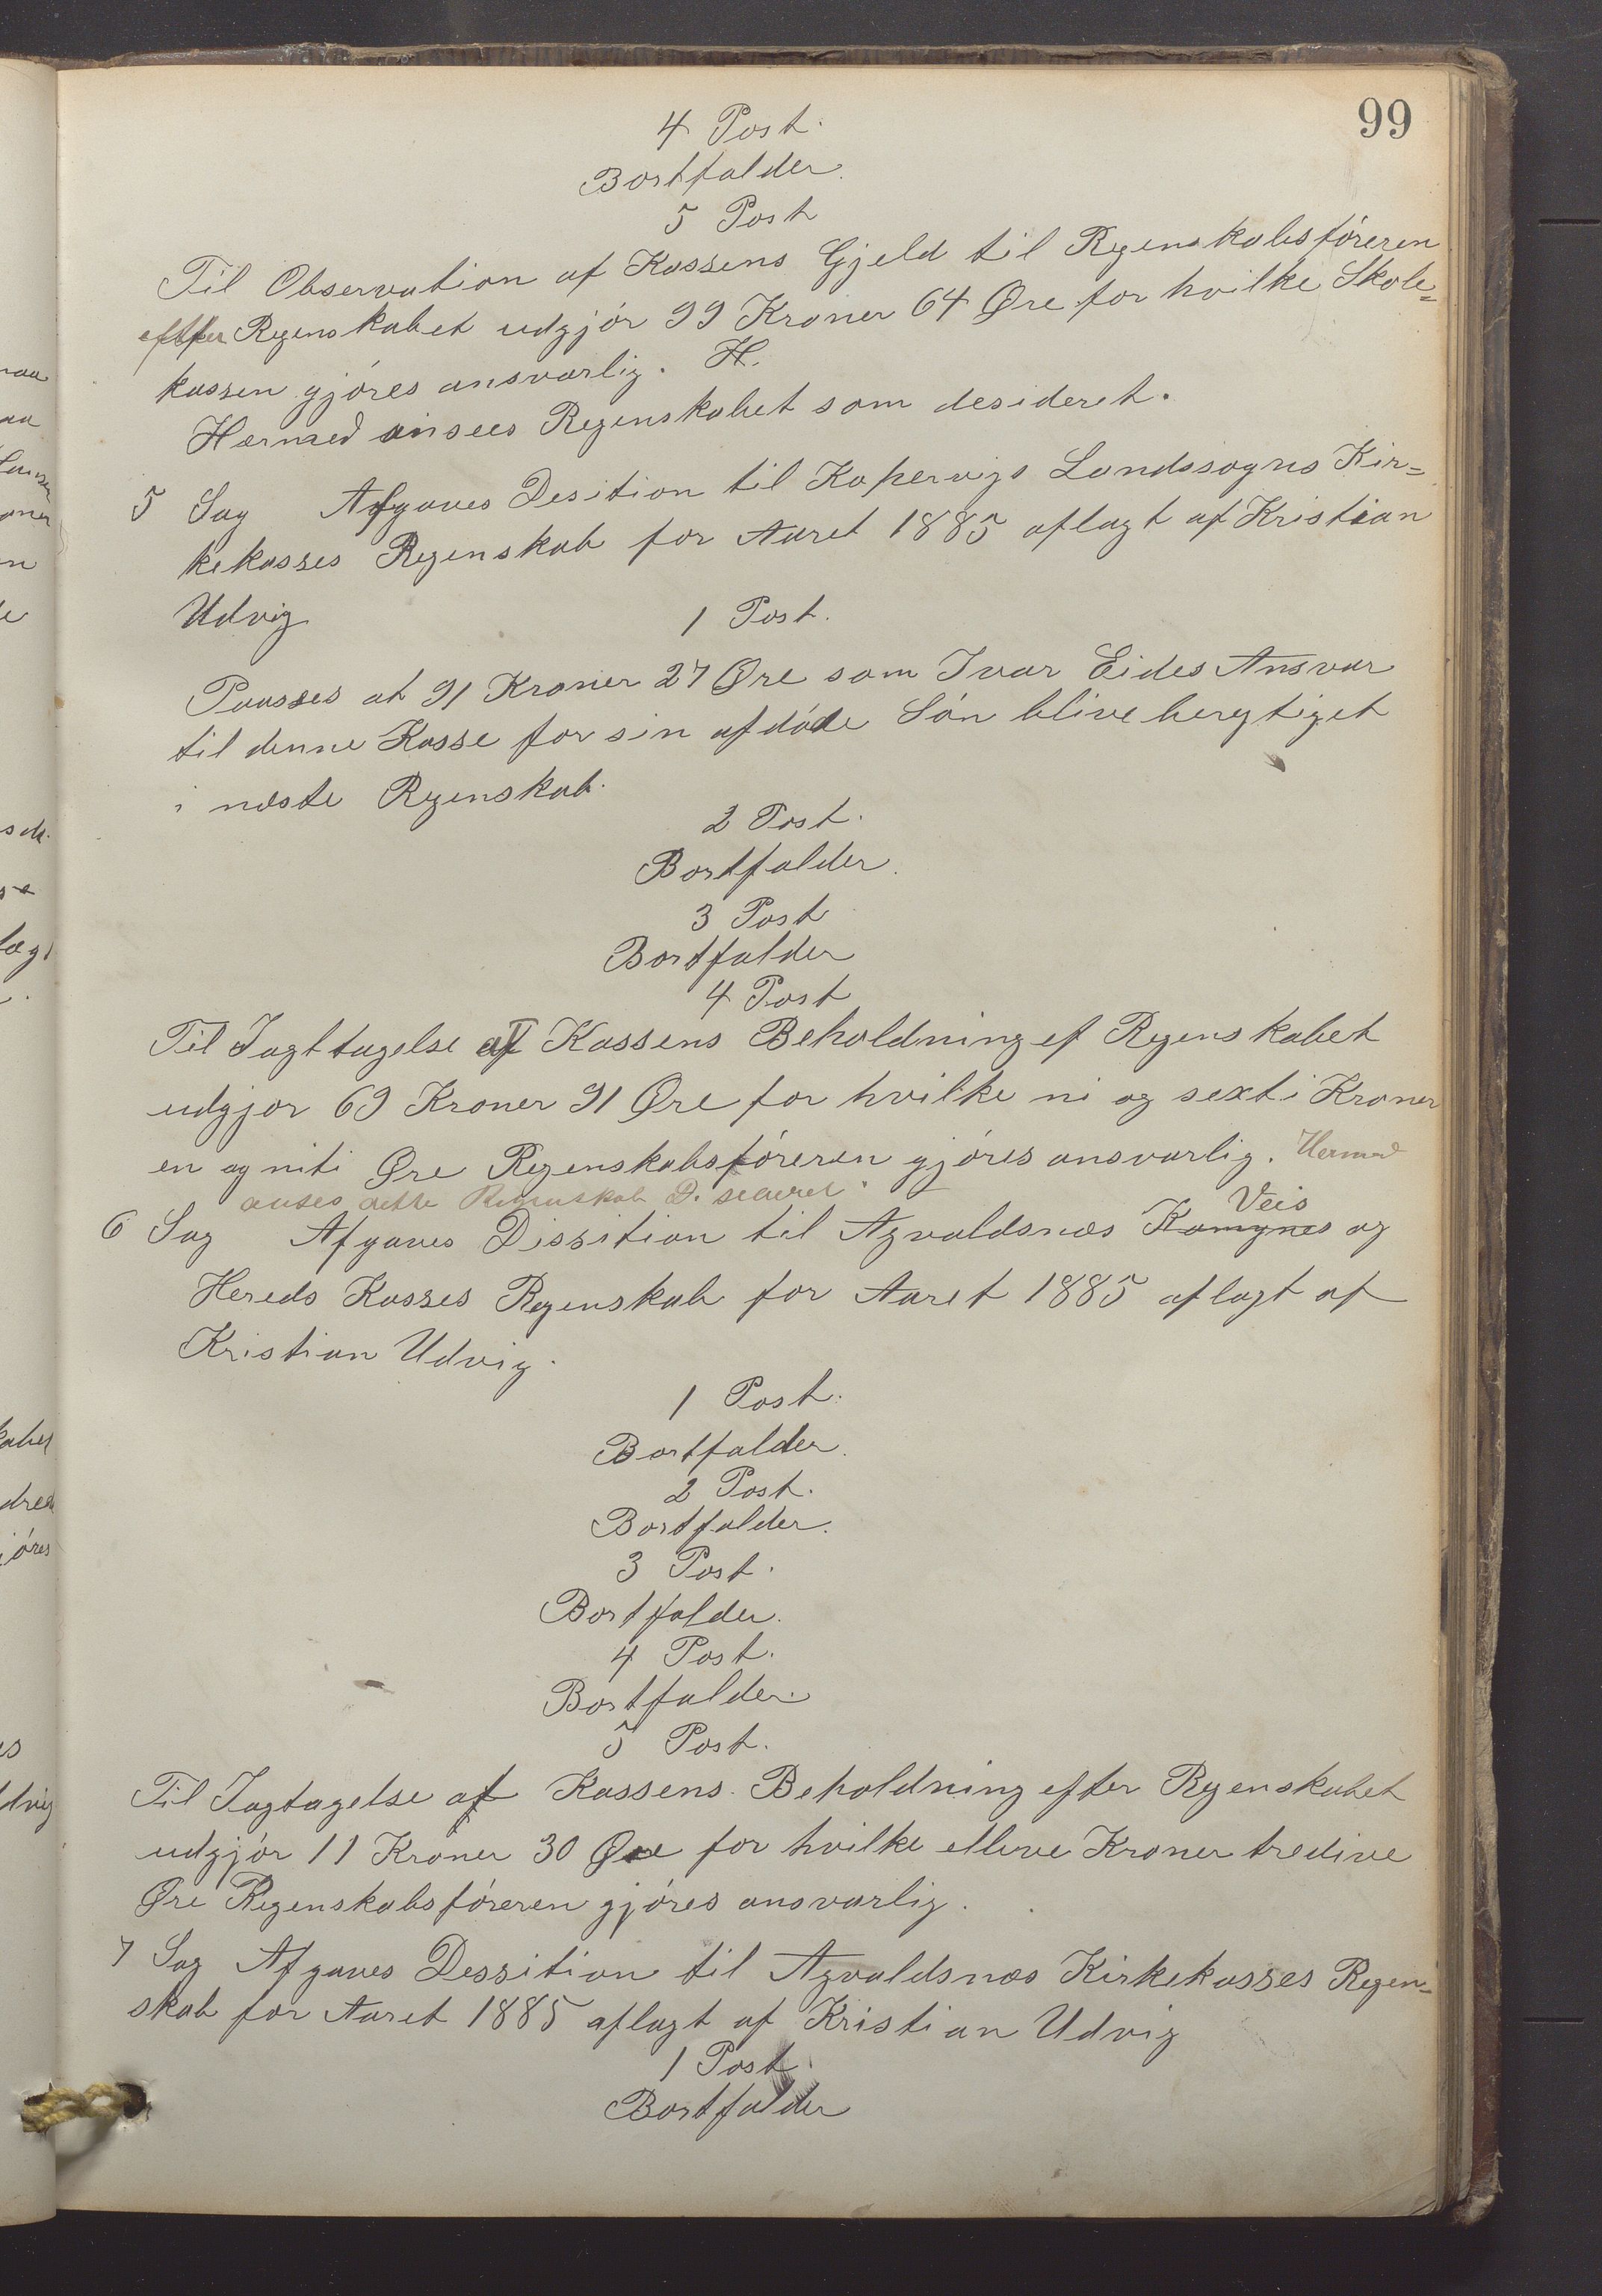 99
4 Post.
Bortfalder.
5 Post
Til Observation af Kassens Gjeld til Regenskabsføreren
efter Regenskabet udgjór 99 Kroner 64 Øre for hvilke Skole=
kassen gjóres ansvarlig. H.
Hermed ansees Regenskabet som desideret.
5 Sag Afgaves Desition til Kopervigs Landssogns Kir=
kekasses Regenskab for Aaret 1885 aflagt af Kristian
Udvig
1 Post.
Paasses at 91 Kroner 27 Øre som Ivar Eides Ansvar
til denne Kasse for sin afdóde Són blive beregtiget
i næste Regenskab.
2 Post.
Bortfalder.
3 Post
Bortfalder
4 Post
Til Iagttagelse af Kassens Beholdning ef Regenskabet
udgjor 69 Kroner 91 Øre for hvilke ni og sexti Kroner
en og niti Øre Regenskabsfóreren gjóres ansvarlig. Hermed
anses dette Regenskab
Veis
6 Sag Afgaves Dissition til Agvaldsnæs Komynes og
Hereds Kasses Regenskab for Aaret 1885 aflagt af
Kristian Udvig.
1 Post.
Bortfalder.
2 Post.
Bortfalder.
3 Post.
Bortfalder.
4 Post.
Bortfalder.
5 Post.
Til Iagtagelse af Kassens Beholdning efter Regenskabet
udgjór 11 Kroner 30 Øre for hvilke elleve Kroner tredive
Øre Regenskabsfóreren gjóres ansvarlig.
7 Sag Afgaves Dessition til Agvaldsnæs Kirkekasses Regen=
skab for Aaret 1885 aflagt af Kristian Udvig
1 Post.
Bortfalder